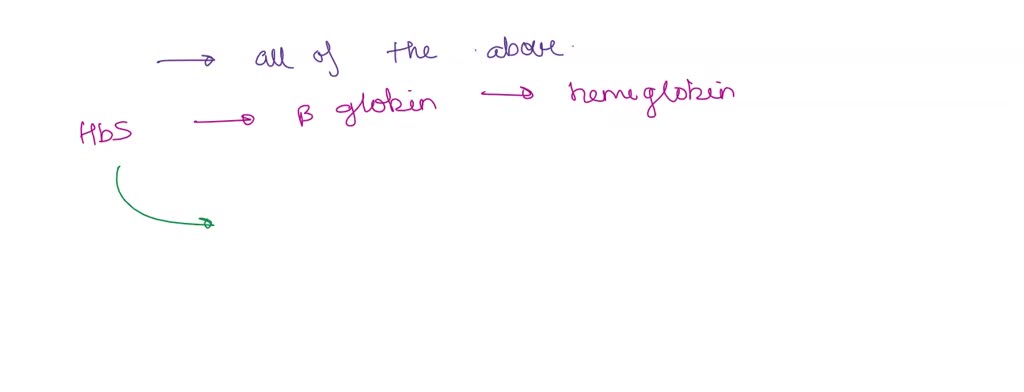 → all of the above.
HbS → β globin → hemeglobin